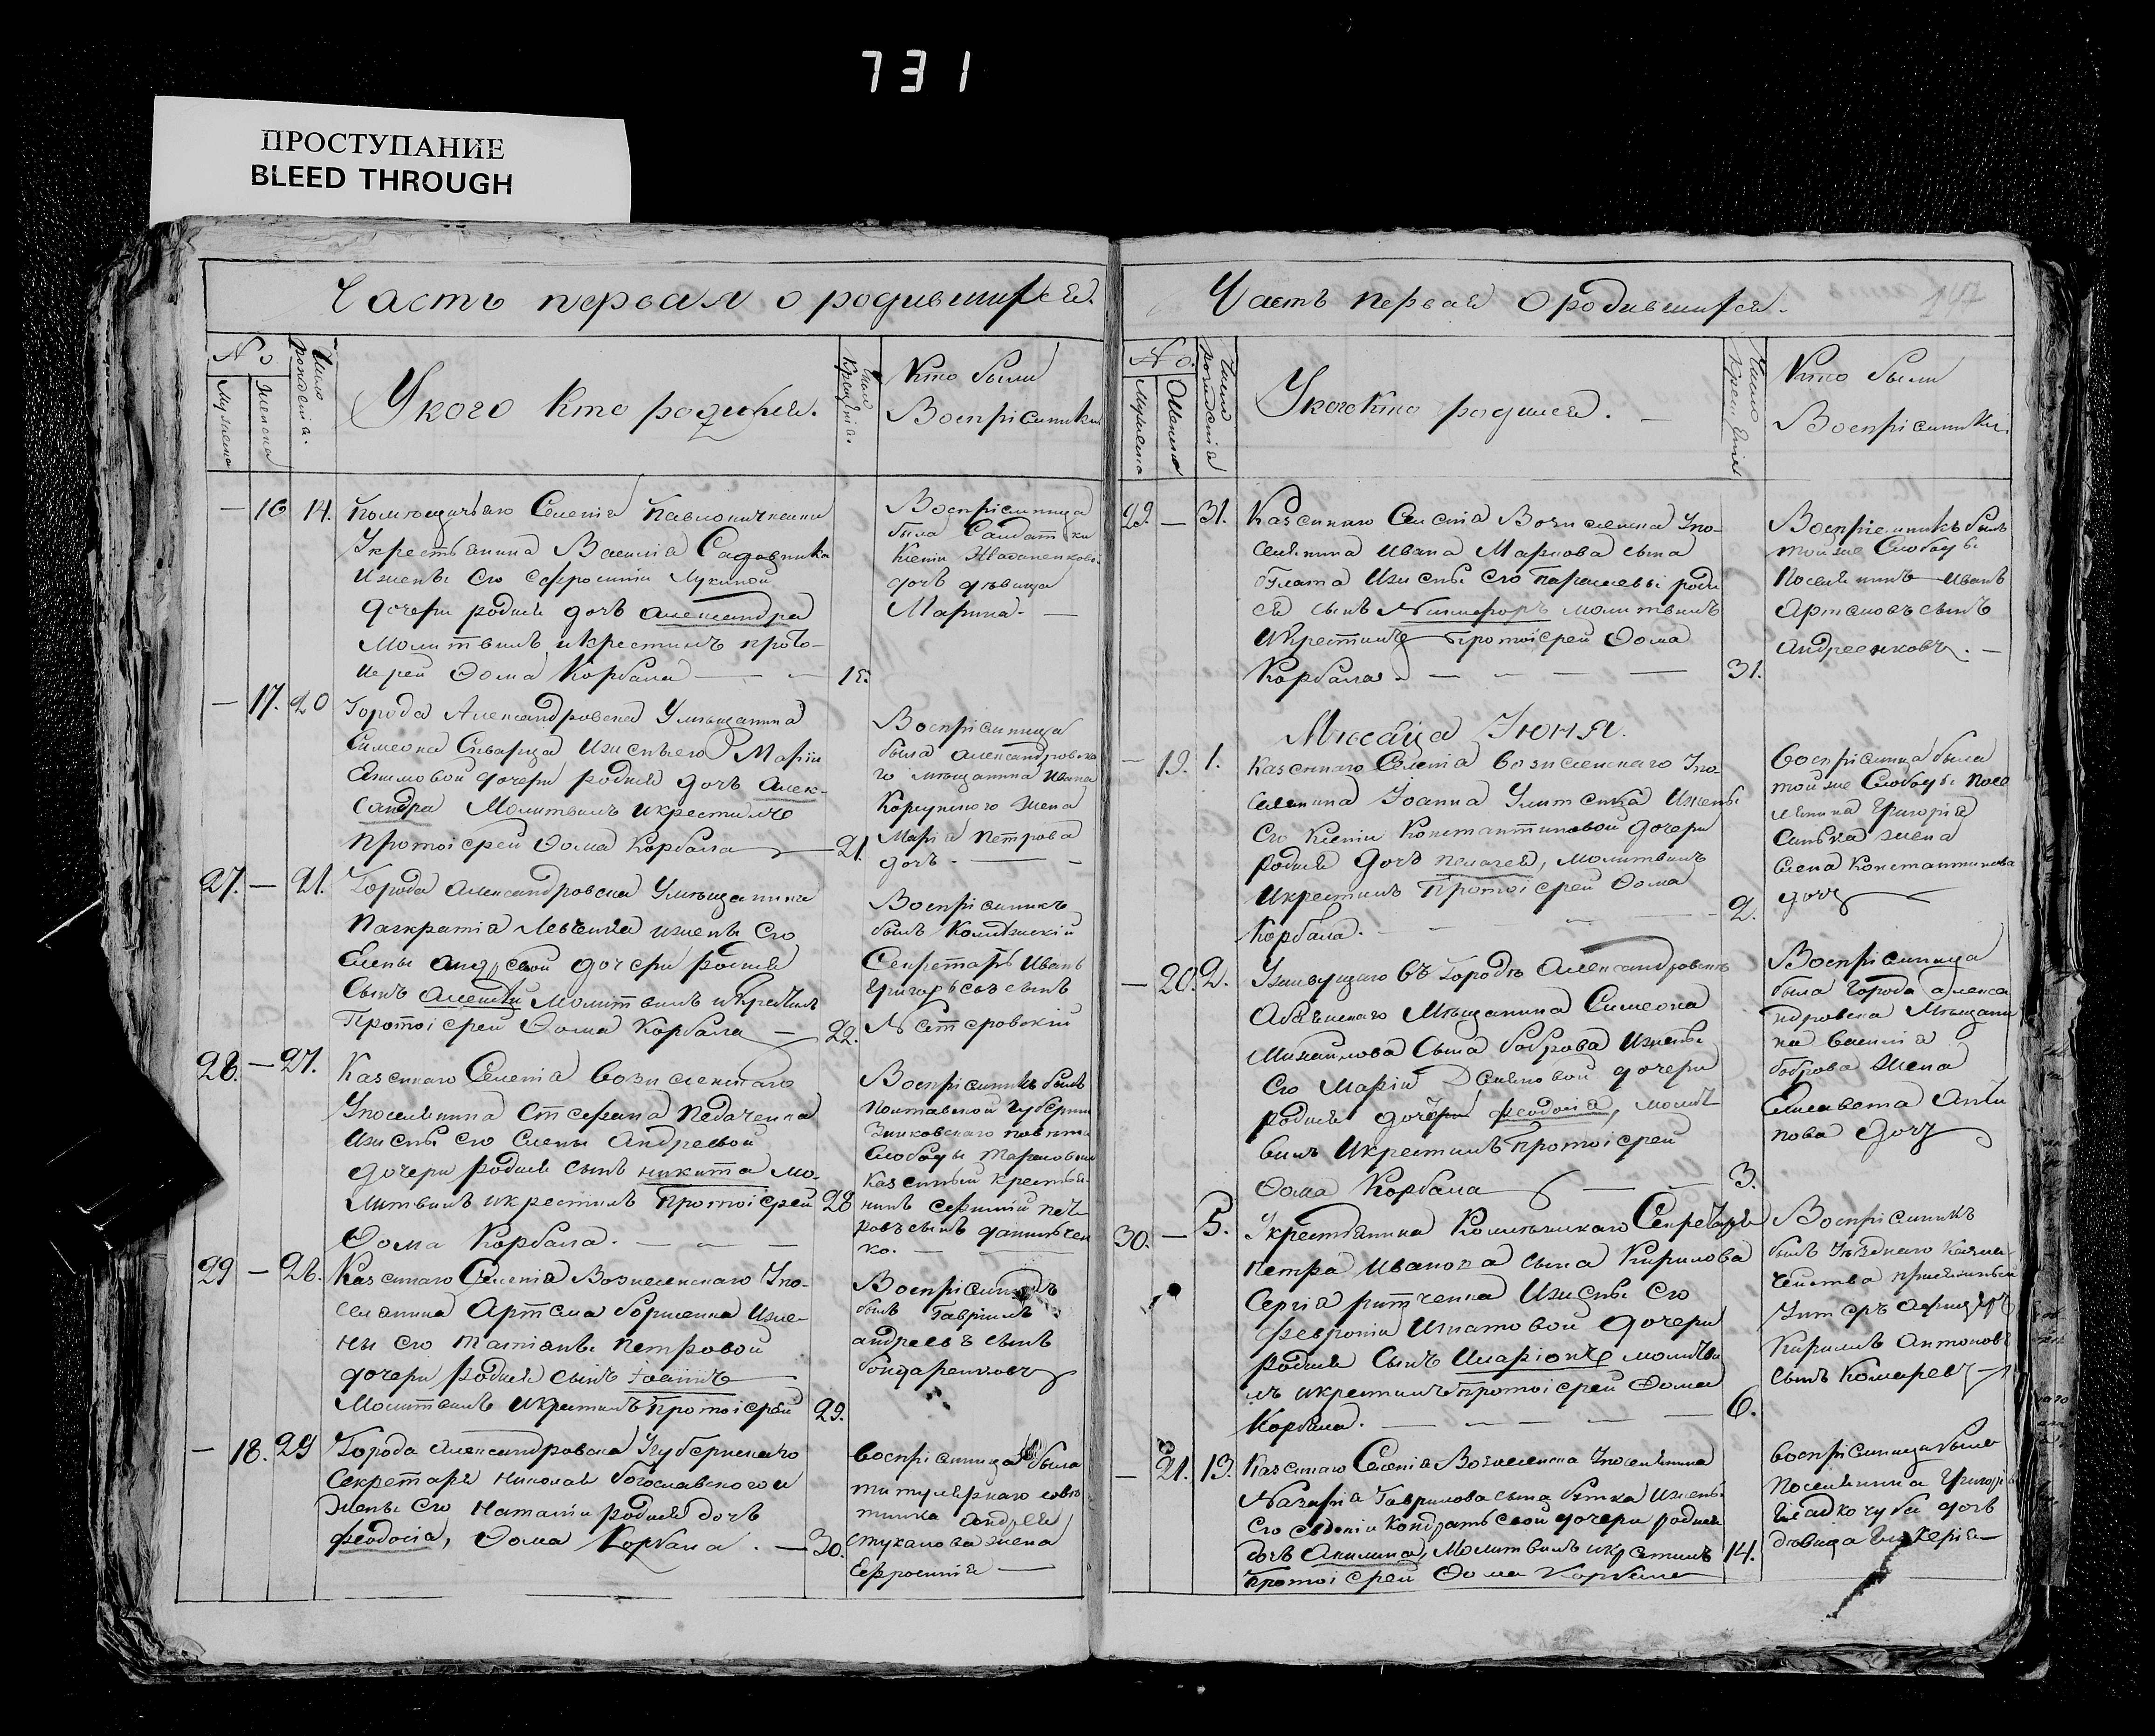 731
ПРОСТУПАНИЕ
BLEED THROUGH
Часть первая о родившихся.
№
Мужеска
Женска
Число рождения.
У кого кто родился.
Число Крещенія.
Кто были
Воспріемники
— 16 14. Помещичьяго Селенія
Укрестьянина Василія Садовника
Ижены Его Ефросиніи Лукиной
дочери родися дочь Александра
Молитвилъ икрестилъ прото-
иерей Ѳома Корбала — 15.
Воспріемница
была Салдатки
Ксеніи
дочь девица
Марина. —
— 17. 20 Города Александровска Умещанина
Симеона Ижены его Маріи
Екимовой дочери родися дочь Алек-
сандра Молитвилъ икрестилъ
протоіерей Ѳома Корбала — 21.
Воспріемница
была Александровска
го мещанина Ивана
жена
Марія Петрова
дочь. —
27. — 21. Города Александровска Умещанина
Панкратія Левченка ижены Его
Елены дочери родися
Сынъ Алексей молитвилъ икрестилъ
Протоіерей Ѳома Корбала — 22.
Воспріемникъ
былъ
Секретарь Иванъ
Григорьевъ сынъ
Нестеровскій
28. — 27. Казеннаго Селенія Вознесенскаго
Упоселянина Стефана Педаченка
Ижены Его Елены Андреевой
дочери родися сынъ никита мо-
литвилъ икрестилъ протоіерей 28
Ѳома Корбала. —
Воспріемникъ былъ
Полтавской Губерніи
Зинковскаго повета
Слободы
Казенный крестья-
нинъ
сынъ данильчен
ко. —
29 — 28. Казеннаго Селенія Вознесенскаго Упо-
селянина Артема Ижe-
ны Его татіаны петровой
дочери родися сынъ Іоаннъ
Молитвилъ икрестилъ протоіерей 29.
Воспріемникъ
былъ Гавріилъ
андреевъ сынъ
бондаренковъ
— 18. 29 Города Александровска Угубернскаго
Секретаря николая богославскаго и
жены Его Наталіи родися дочь
феодосія, Ѳома Корбала. — 30.
воспріемница была
титулярнаго сове
тника Андрея
стуканова жена
Ефросинія —
Часть первая о родившихся.
147
№.
Мужеска
Женска
Число рожденія
У кого кто родился. —
Число Крещенія
Кто были
Воспріемники.
29. — 31. Казеннаго Селенія Вознесенска Упо-
селянина Ивана Маркова сына
Булата Ижены Его Параскевы роди
ся сынъ Никифоръ молитвилъ
Икрестилъ Протоіерей Ѳома
Корбала. — 31.
Воспріемникъ былъ
тойже Слободы
Поселянинъ Иванъ
Артемовъ сынъ
андреенковъ. —
Месяца Іюня.
— 19. 1. Казеннаго Селенія вознесенскаго Упо-
селянина Іоанна Ижены
Его Ксеніи Константиновой дочери
родися дочь пелагея, молитвилъ
Икрестилъ Протоіерей Ѳома
Корбала. — 2.
воспріемница была
тойже Слободы посе
лянина Григорія
жена
Елена Константинова
дочь
— 20. 2. Уживущаго въ Городе Александровске
Мещанина Симеона
Михайлова Сына боброва Ижены
Его Маріи дочери
родися дочери феодосія, молит
вилъ Икрестилъ протоіерей
Ѳома Корбала — 3.
Воспріемница
была города алекса
ндровска Мещани
на василія
боброва жена
Елисавета
дочь
30. — 5. Укрестьянина Секретаря
петра Иванова сына Кирилова
Сергія Ижены Его
февроніи Игнатовой дочери
родися Сынъ Иларіонъ молитви
лъ икрестилъ протоіерей Ѳома
Корбала. — 6.
Воспріемникъ
былъ Уезднаго Казна-
чейства присяжный
Унтеръ афицеръ
Кирилъ Антоновъ
сынъ Комаревъ
— 21. 13. Казеннаго Селенія Вознесенска Упоселянина
Назарія Гаврилова сына Ижены
Его Евдокіи Кондратьевой дочери родися
дочь Акилина, молитвилъ икрестилъ 14.
Протоіерей Ѳома Корбала
воспріемница была
Поселянина Григорія
дочь
девица Гликерія —